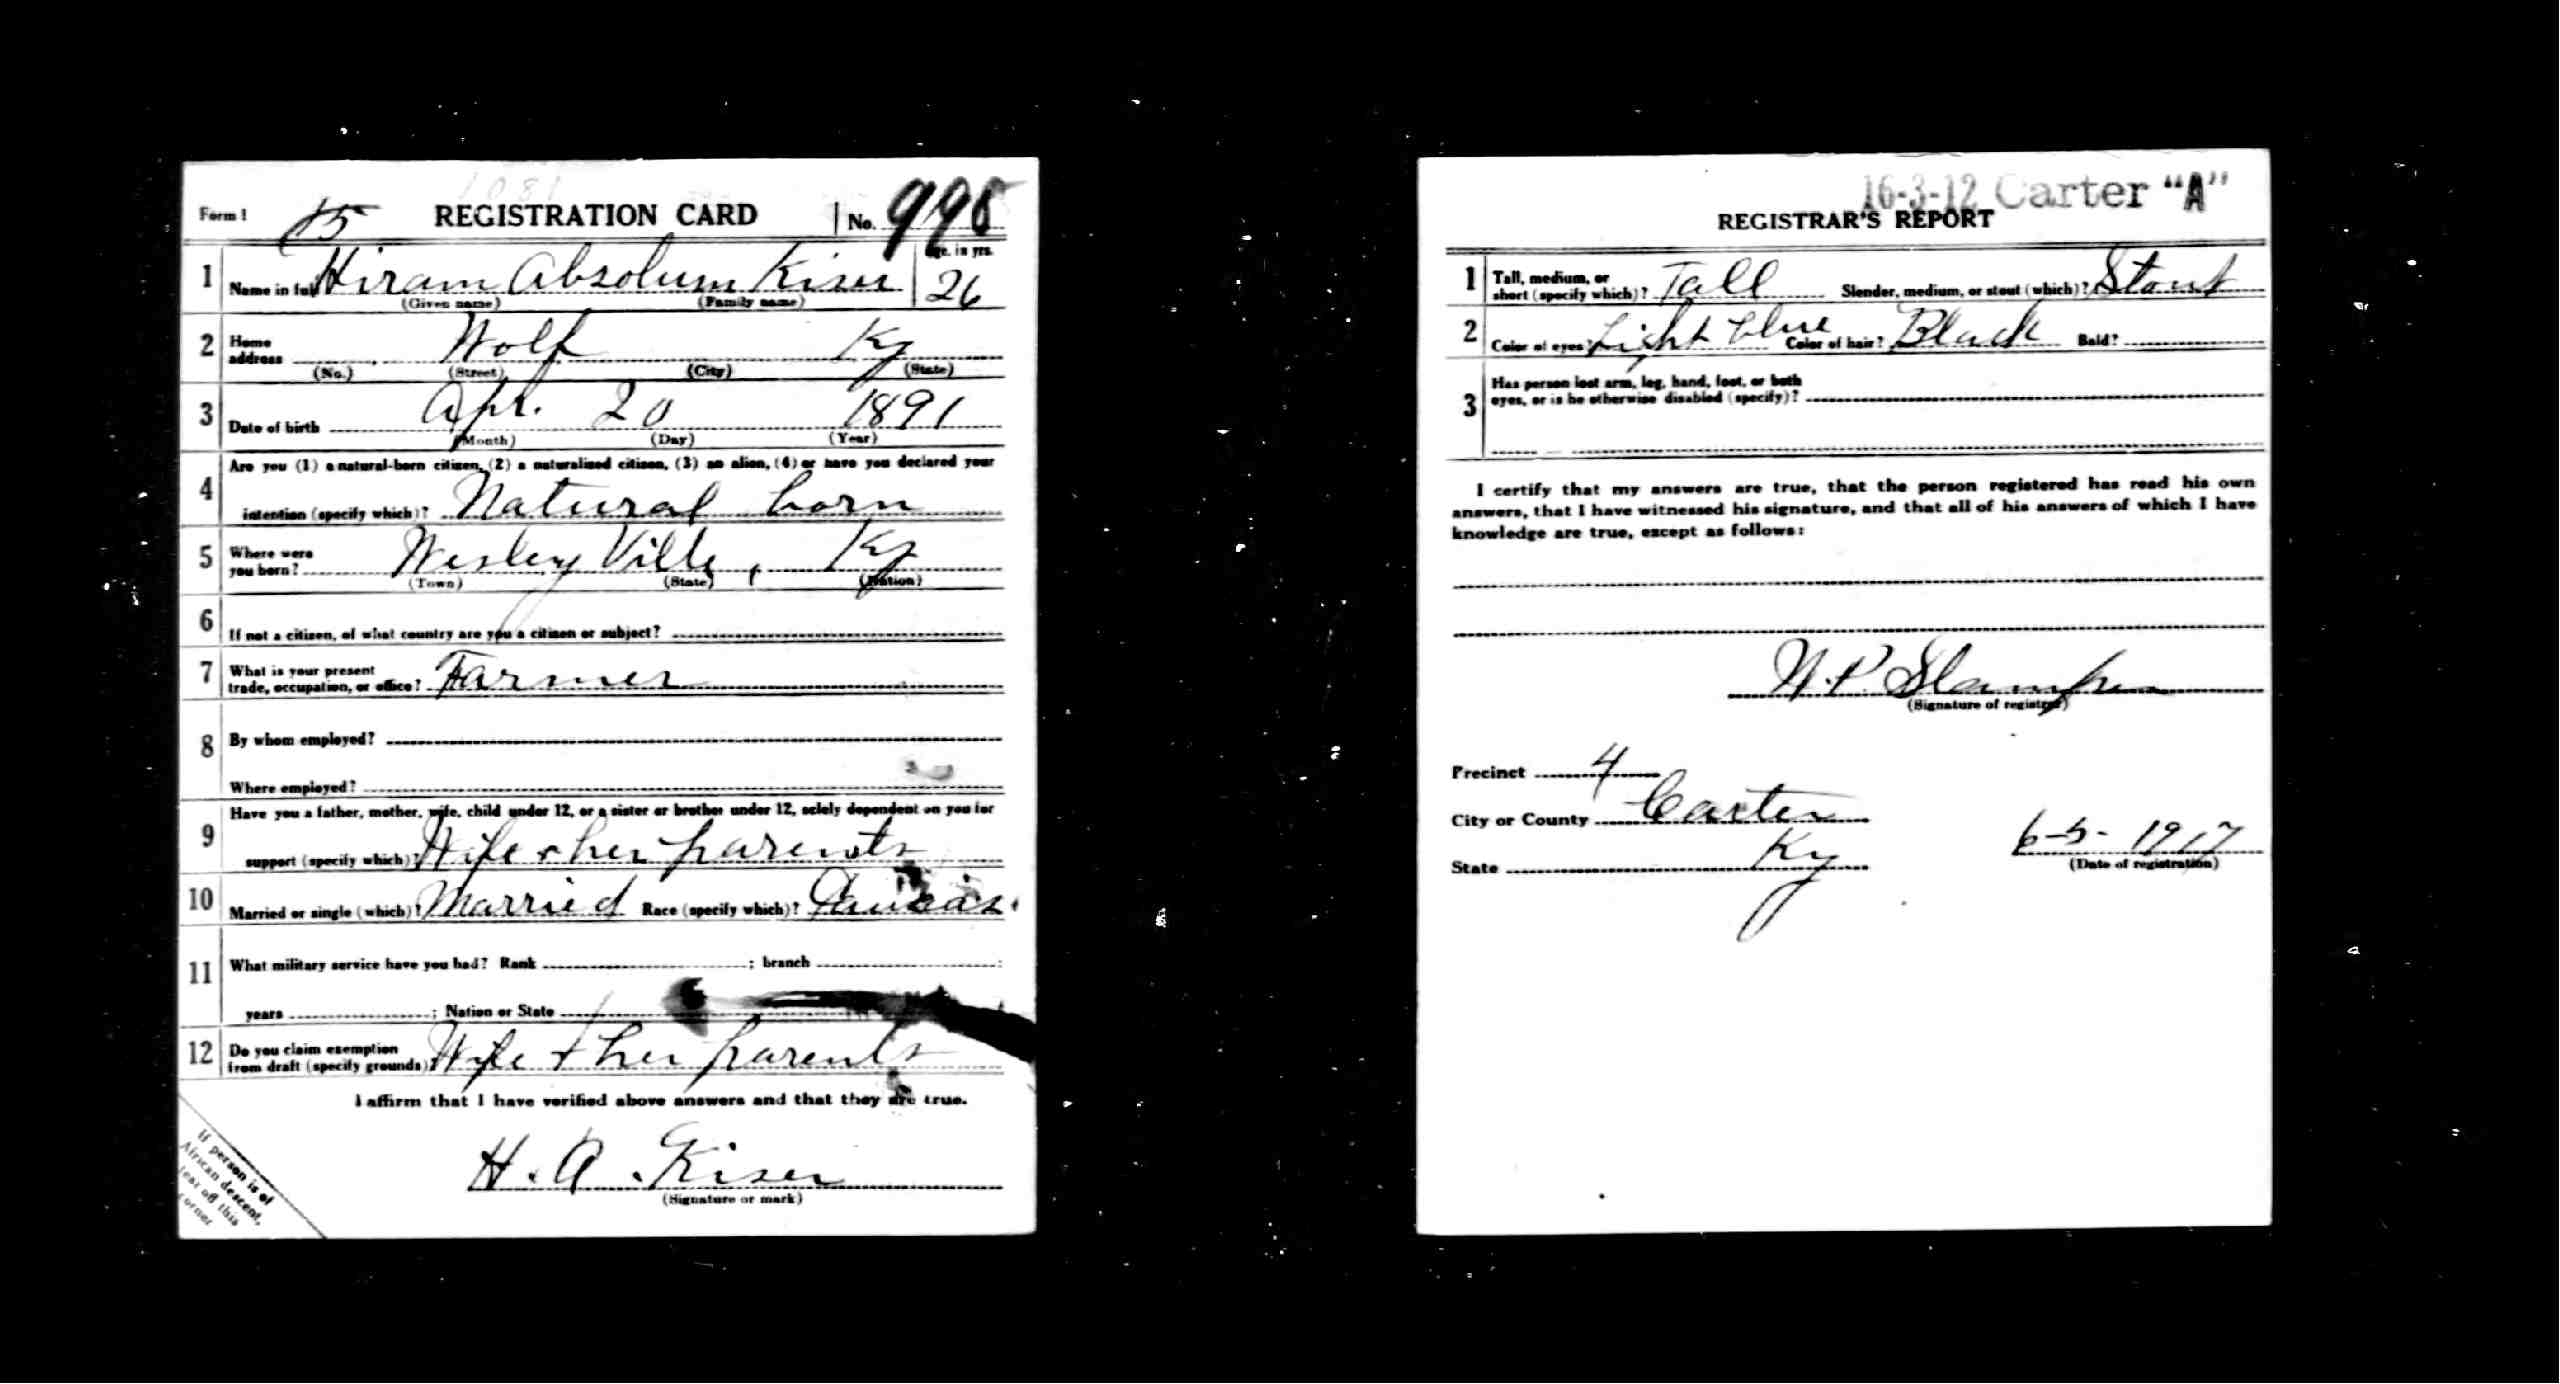 Form 1 15 REGISTRATION CARD No. 998
1 Name in full Hiram Absolum Kiser Age, in yrs. 26
(Given name) (Family name)
2 Home address Wolf Ky
(No.) (Street) (City) (State)
3 Date of birth Apr. 20 1891
(Month) (Day) (Year)
4 Are you (1) a natural-born citizen, (2) a naturalized citizen, (3) an alien, (4) or have you declared your
intention (specify which)? Natural born
5 Where were you born? Wesley Ville, Ky
(Town) (State) (Nation)
6 If not a citizen, of what country are you a citizen or subject?
7 What is your present trade, occupation, or office? Farmer
8 By whom employed?
Where employed?
9 Have you a father, mother, wife, child under 12, or a sister or brother under 12, solely dependent on you for
support (specify which)? Wife & her parents
10 Married or single (which)? Married Race (specify which)?
11 What military service have you had? Rank ; branch ;
years ; Nation or State
12 Do you claim exemption from draft (specify grounds)? Wife & her parents
I affirm that I have verified above answers and that they are true.
H. A. Kiser
(Signature or mark)
If person is of
African descent,
tear off this
corner
16-3-12 Carter "A"
REGISTRAR'S REPORT
1 Tall, medium, or short (specify which)? Tall Slender, medium, or stout (which)? Stout
2 Color of eyes? Light blue Color of hair? Black Bald?
3 Has person lost arm, leg, hand, foot, or both
eyes, or is he otherwise disabled (specify)?
I certify that my answers are true, that the person registered has read his own
answers, that I have witnessed his signature, and that all of his answers of which I have
knowledge are true, except as follows:
(Signature of registrar)
Precinct 4
City or County Carter
State Ky 6-5-1917
(Date of registration)